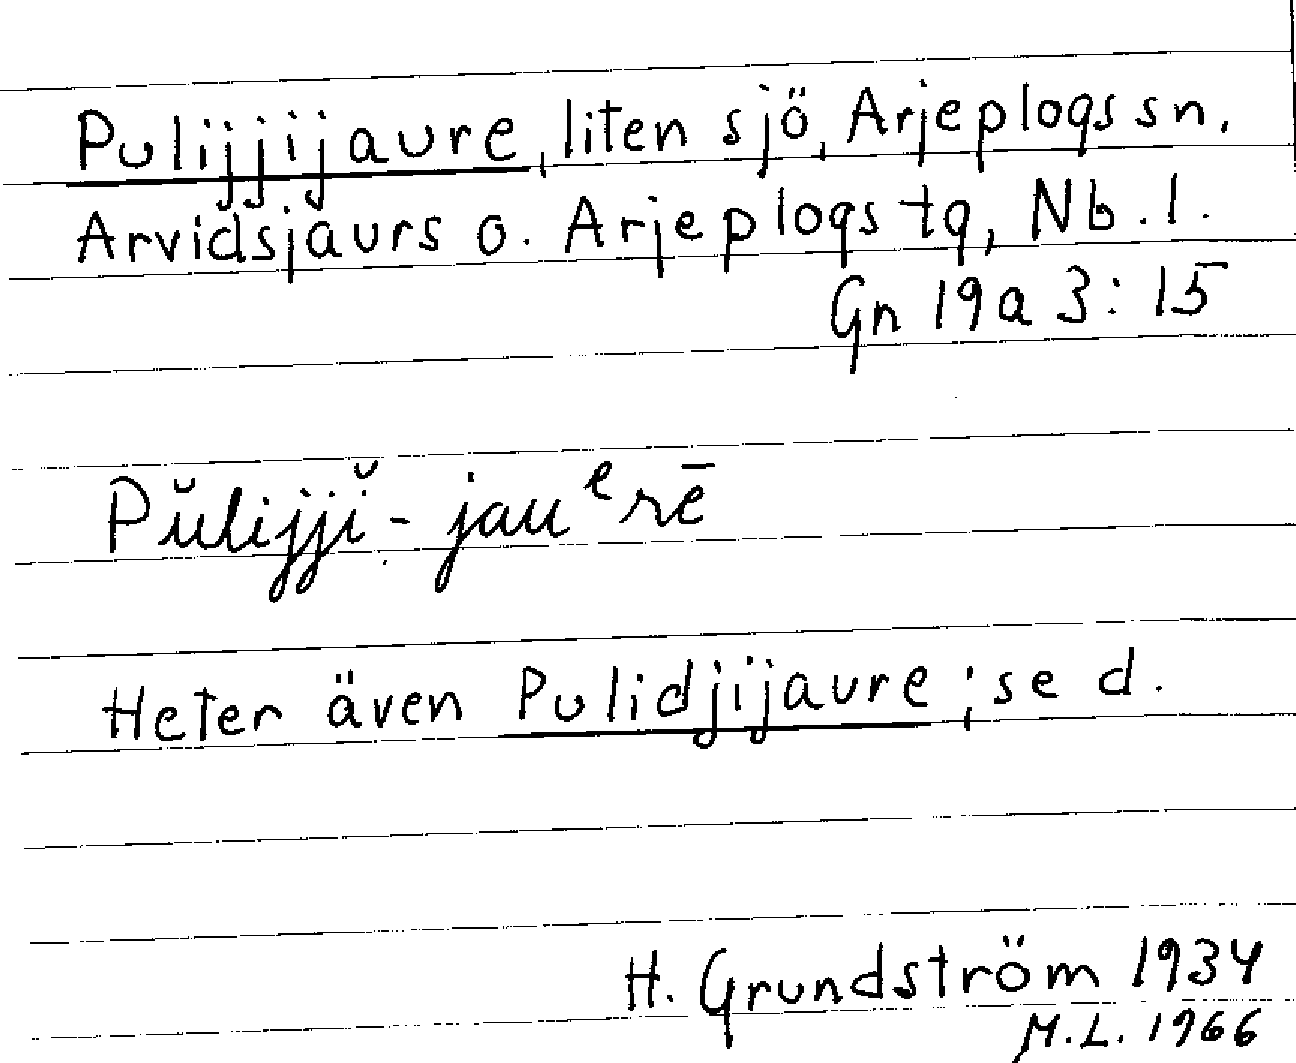 Pulijjijaure, liten sjö, Arjeplogs sn.
Arvidsjaurs o. Arjeplogs tg, Nb. l.
Gn 19a 3:15
Pŭlijjĭ-jauᵉrē
Heter även Pulidjijaure; se d.
H. Grundström 1934
M.L. 1966